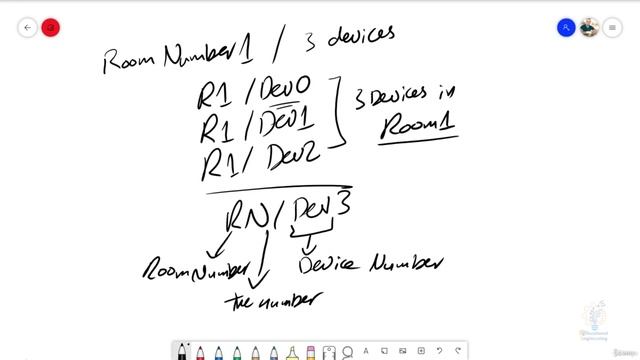 Room Number 1 / 3 devices
R1 / Dev0
R1 / Dev1
R1 / Dev2
3 Devices in
Room 1
RN / Dev 3
Room Number
Device Number
the number
Educational
Engineering